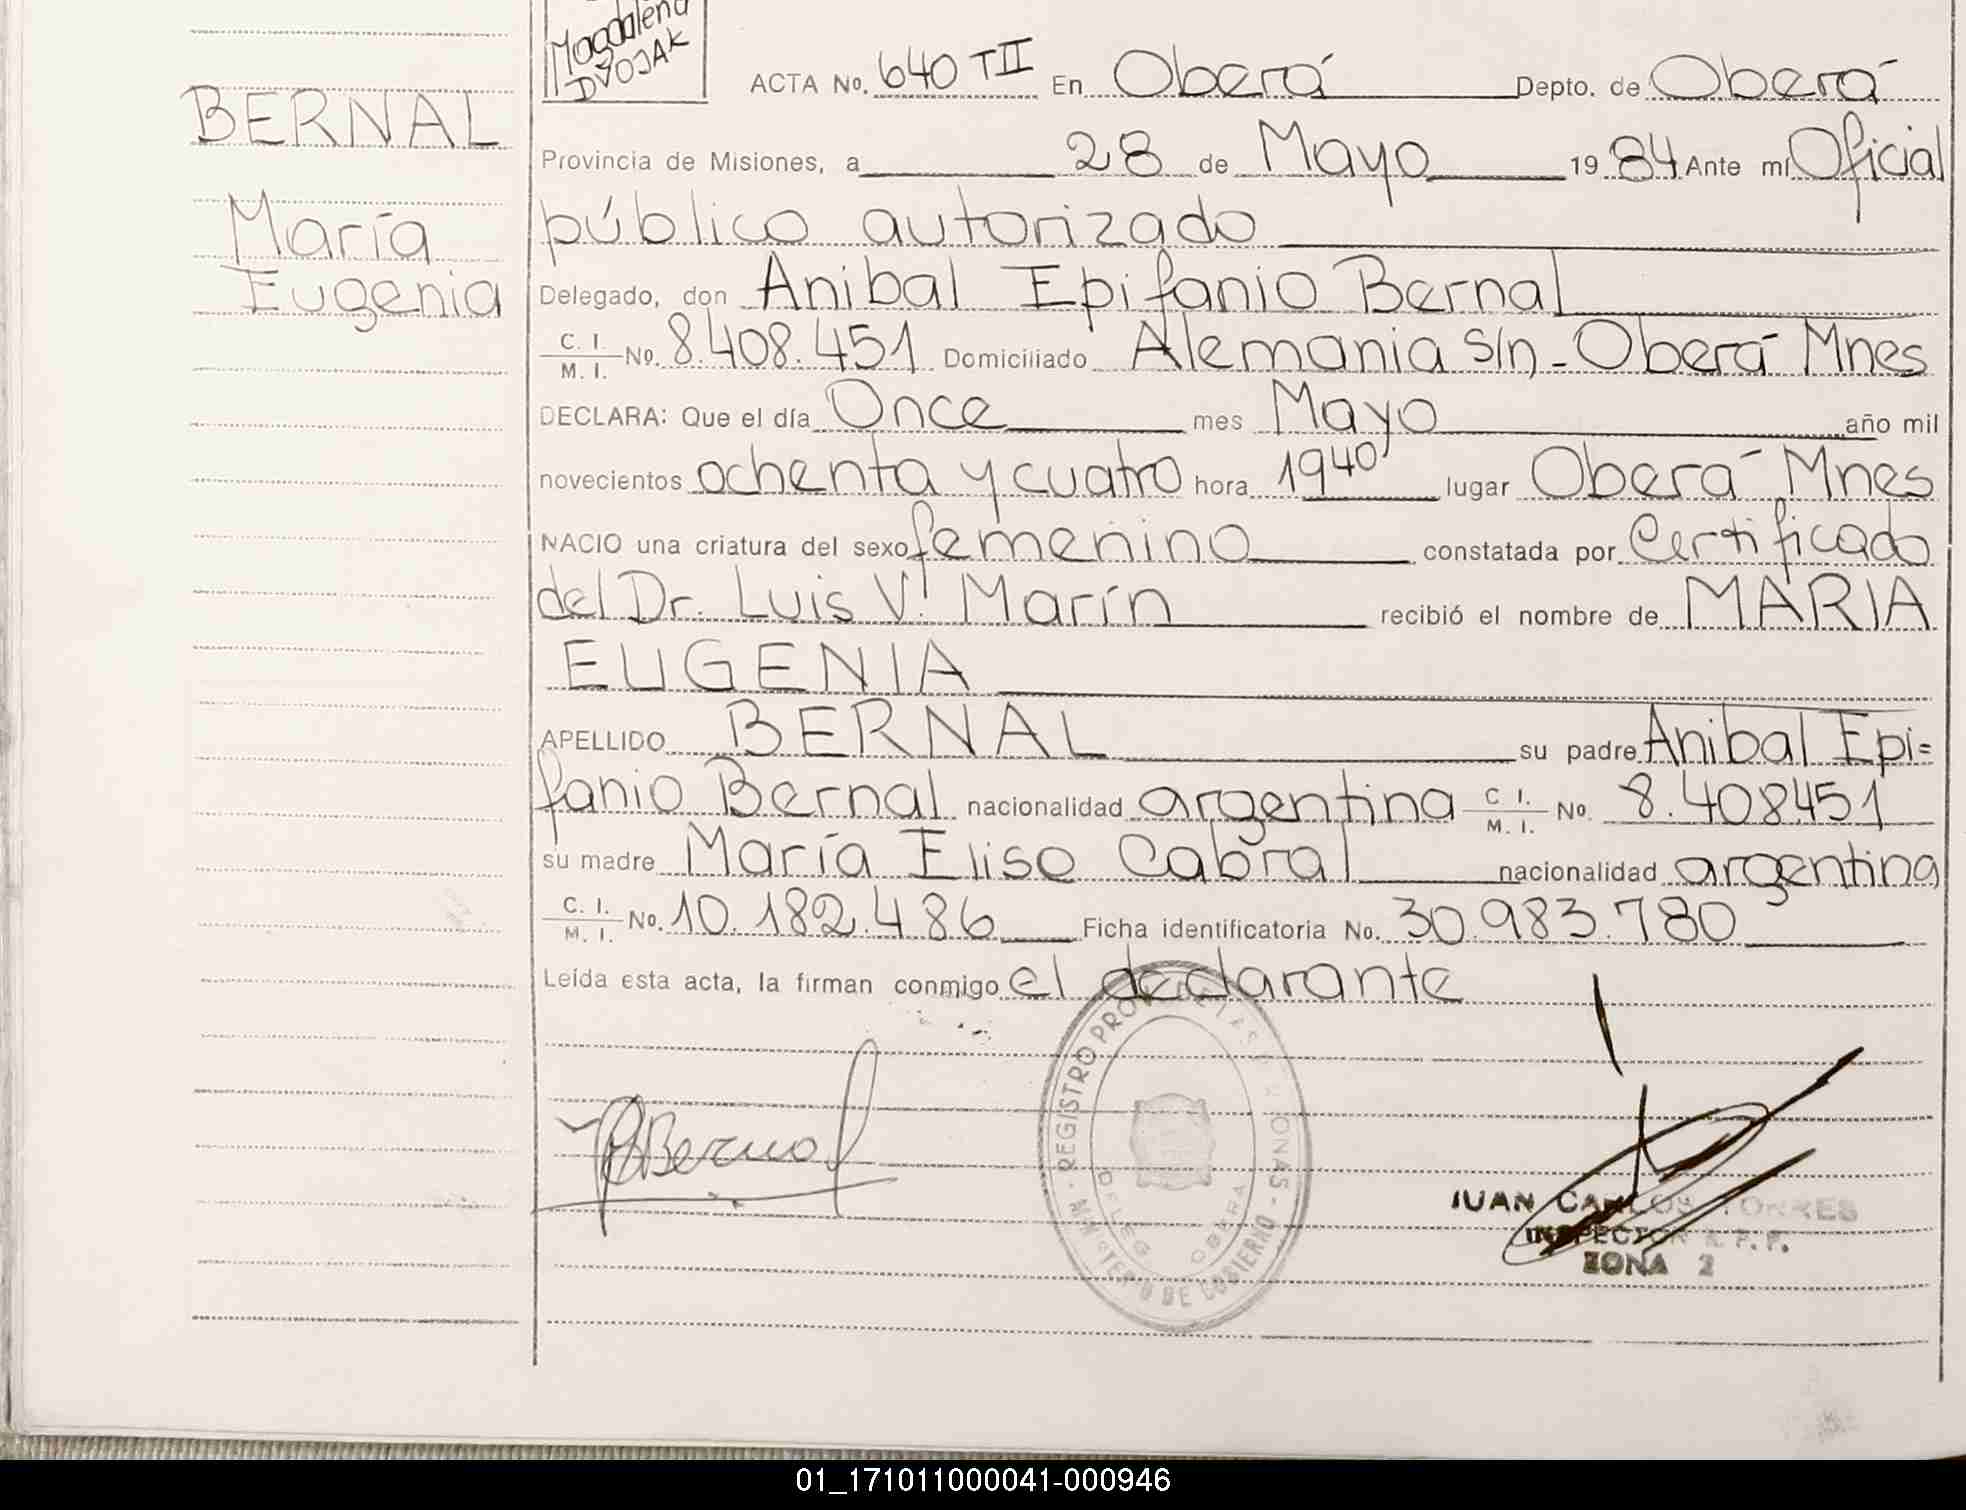 Magdalena
DVOJAK
BERNAL
María
Eugenia
ACTA No. 640 TII En Oberá Depto. de Oberá
Provincia de Misiones, a 28 de Mayo 1984 Ante mí Oficial
público autorizado
Delegado, don Anibal Epifanio Bernal
C. I. / M. I. No. 8.408.451 Domiciliado Alemania s/n - Oberá Mnes
DECLARA: Que el día Once mes Mayo año mil
novecientos ochenta y cuatro hora 1940' lugar Oberá Mnes
NACIO una criatura del sexo femenino constatada por Certificado
del Dr. Luis V. Marín recibió el nombre de MARIA
EUGENIA
APELLIDO BERNAL su padre Anibal Epi=
fanio Bernal nacionalidad argentina C. I. / M. I. No. 8.408.451
su madre María Elise Cabral nacionalidad argentina
C. I. / M. I. No. 10.182.486 Ficha identificatoria No. 30.983.780
Leída esta acta, la firman conmigo el declarante
Bernal
REGISTRO PROV. DE LAS PERSONAS - MINISTERIO DE GOBIERNO -
DELEG. OBERA
JUAN CARLOS TORRES
INSPECTOR R. P. P.
ZONA 2
01_171011000041-000946